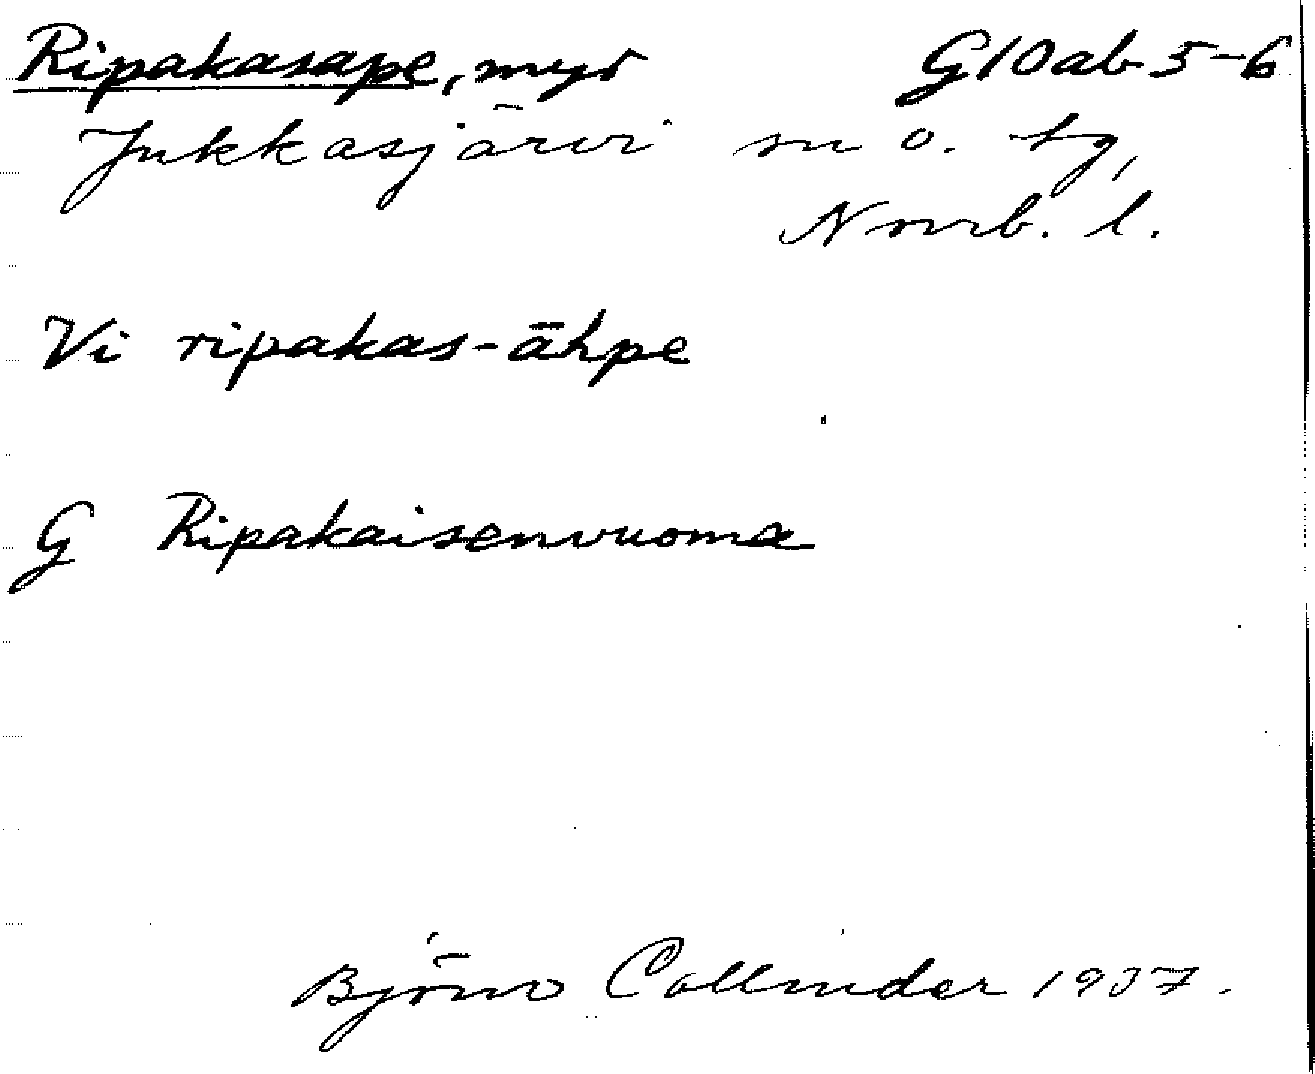 Ripakasape, myr G10ab 5-6
Jukkasjärvi sn o. tg,
Norrb. l.
Vi ripakas-āhpe
G Ripakaisenvuoma
Björn Collinder 1937.